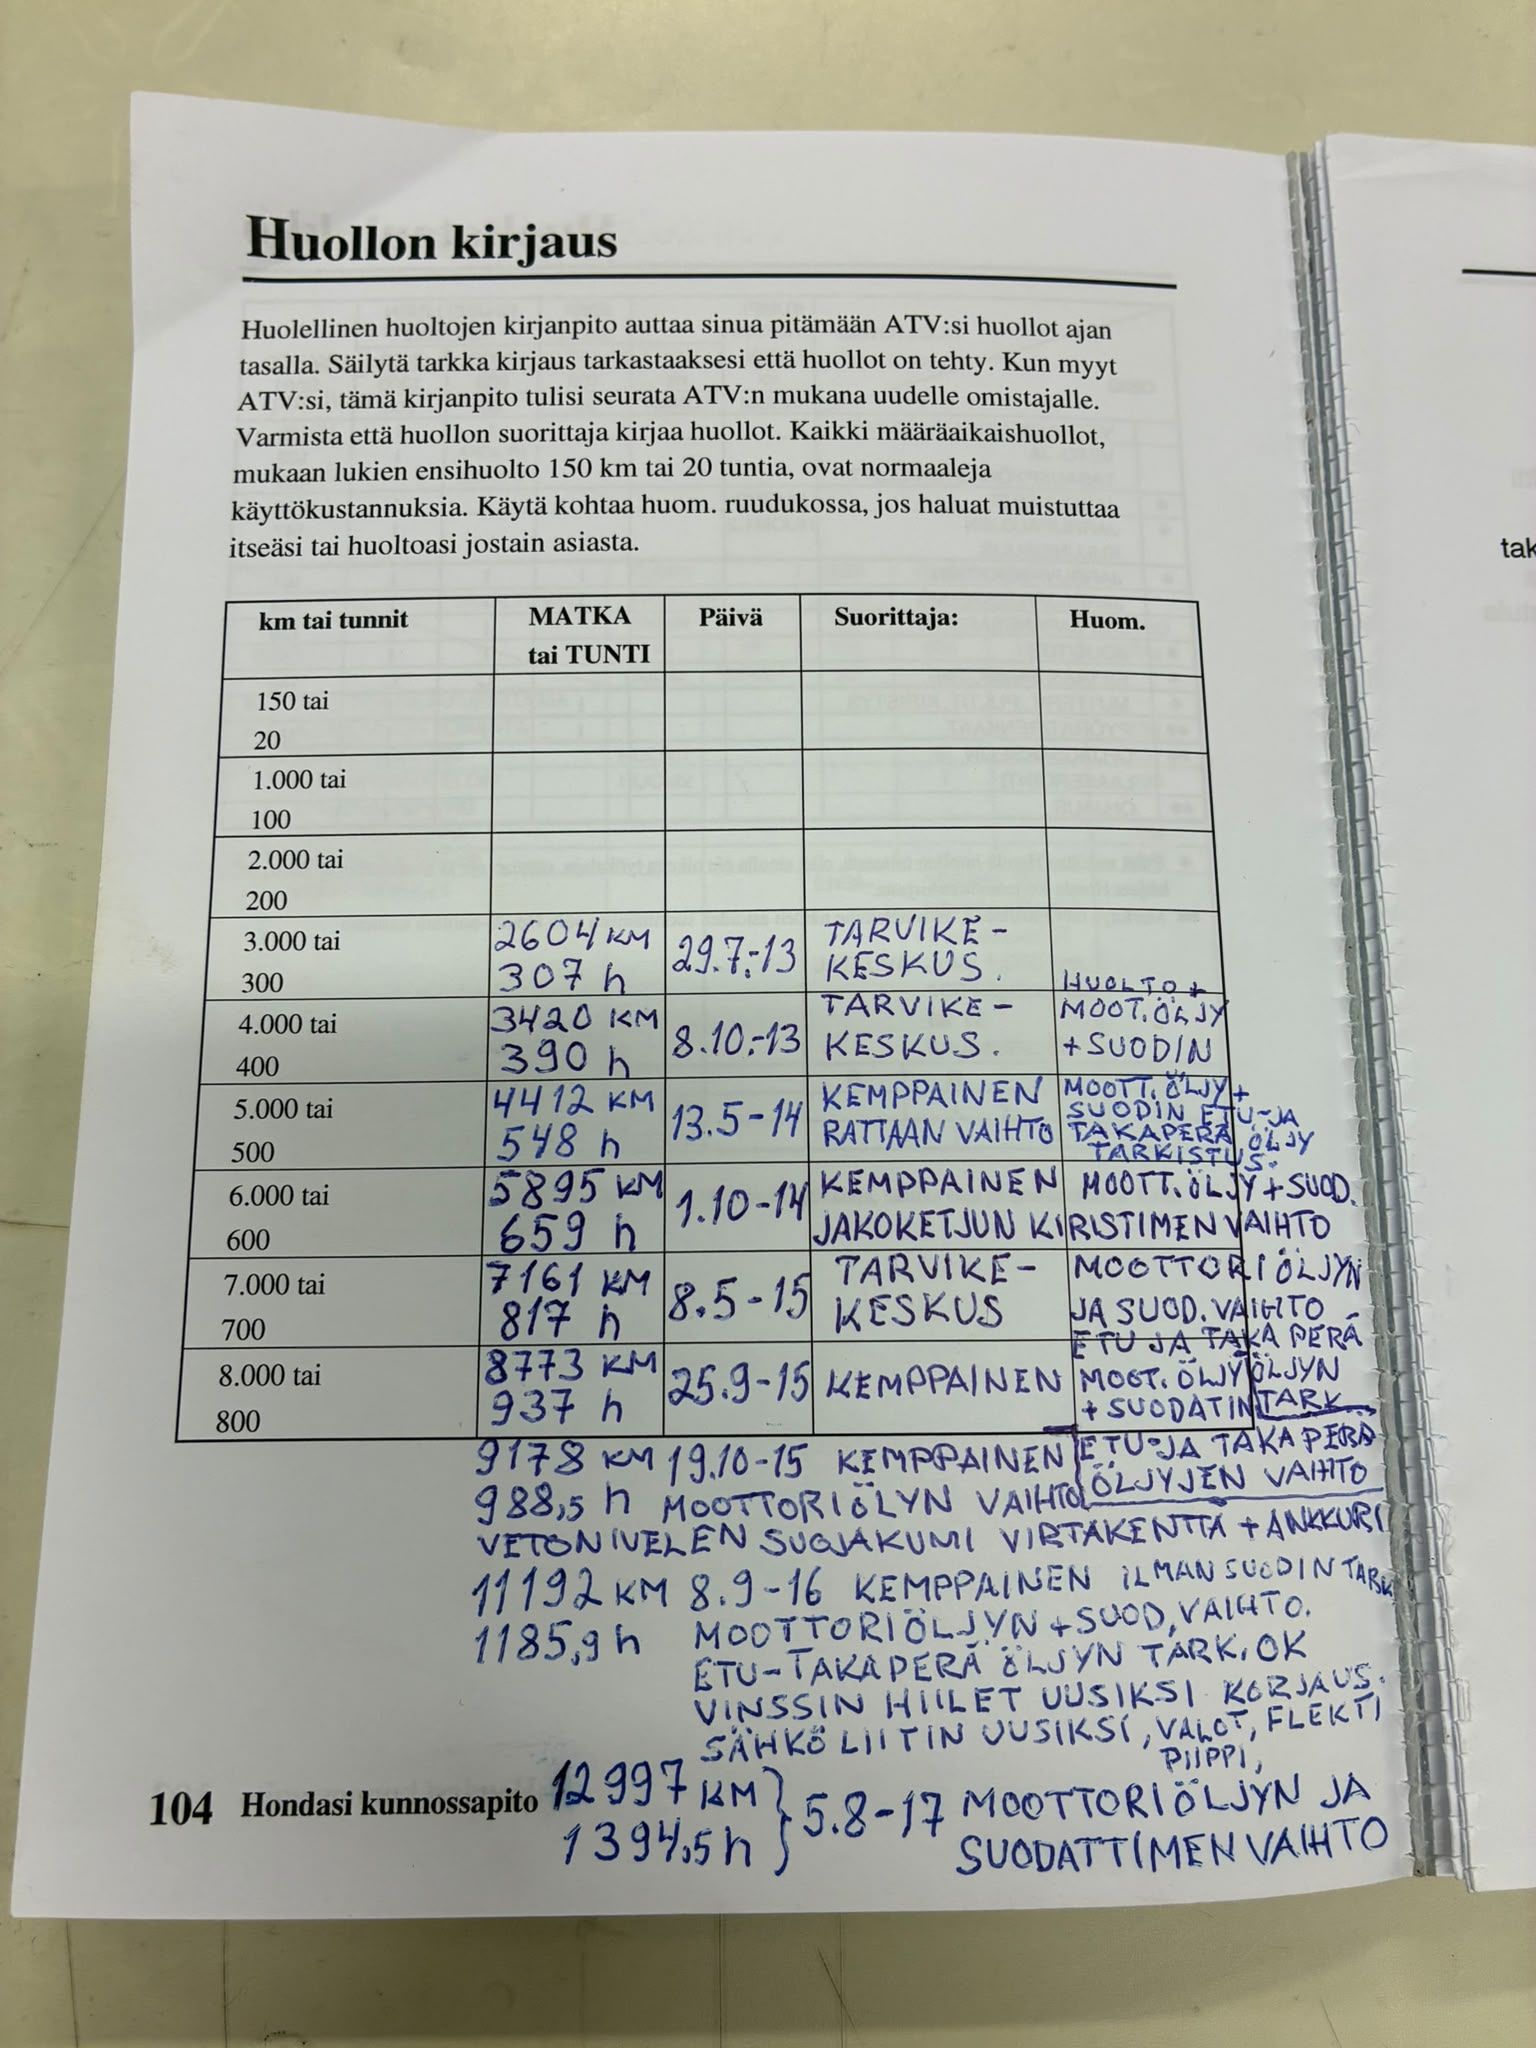 Huollon kirjaus
Huolellinen huoltojen kirjanpito auttaa sinua pitämään ATV:si huollot ajan
tasalla. Säilytä tarkka kirjaus tarkastaaksesi että huollot on tehty. Kun myyt
ATV:si, tämä kirjanpito tulisi seurata ATV:n mukana uudelle omistajalle.
Varmista että huollon suorittaja kirjaa huollot. Kaikki määräaikaishuollot,
mukaan lukien ensihuolto 150 km tai 20 tuntia, ovat normaaleja
käyttökustannuksia. Käytä kohtaa huom. ruudukossa, jos haluat muistuttaa
itseäsi tai huoltoasi jostain asiasta.
km tai tunnit MATKA Päivä Suorittaja: Huom.
tai TUNTI
150 tai
20
1.000 tai
100
2.000 tai
200
3.000 tai 2604 KM 29.7.-13 TARVIKE-
300 307 h KESKUS.
HUOLTO +
4.000 tai 3420 KM 8.10.-13 TARVIKE- MOOT.ÖLJY
400 390 h KESKUS. + SUODIN
5.000 tai 4412 KM 13.5-14 KEMPPAINEN MOOTT.ÖLJY +
SUODIN ETU-JA
500 548 h RATTAAN VAIHTO TAKAPERÄ ÖLJY
TARKISTUS.
6.000 tai 5895 KM 1.10-14 KEMPPAINEN MOOTT.ÖLJY + SUOD.
600 659 h JAKOKETJUN KIRISTIMEN VAIHTO
7.000 tai 7161 KM 8.5-15 TARVIKE- MOOTTORIÖLJYN
700 817 h KESKUS JA SUOD. VAIHTO
ETU JA TAKA PERÄ
8.000 tai 8773 KM 25.9-15 KEMPPAINEN MOOT. ÖLJY ÖLJYN
800 937 h + SUODATIN TARK
9178 KM 19.10-15 KEMPPAINEN ETU-JA TAKAPERÄ
988,5 h MOOTTORIÖLYN VAIHTO ÖLJYJEN VAIHTO
VETONIVELEN SUOJAKUMI VIRTAKENTTÄ + ANKKURI
11192 KM 8.9-16 KEMPPAINEN ILMANSUODIN TARK
1185,9 h MOOTTORIÖLJYN + SUOD, VAIHTO.
ETU-TAKAPERÄ ÖLJYN TARK. OK
VINSSIN HIILET UUSIKSI KORJAUS.
SÄHKÖ LIITIN UUSIKSI, VALOT, FLEKTI
PIIPPI,
12997 KM } 5.8-17 MOOTTORIÖLJYN JA
1394,5 h SUODATTIMEN VAIHTO
104 Hondasi kunnossapito
tak